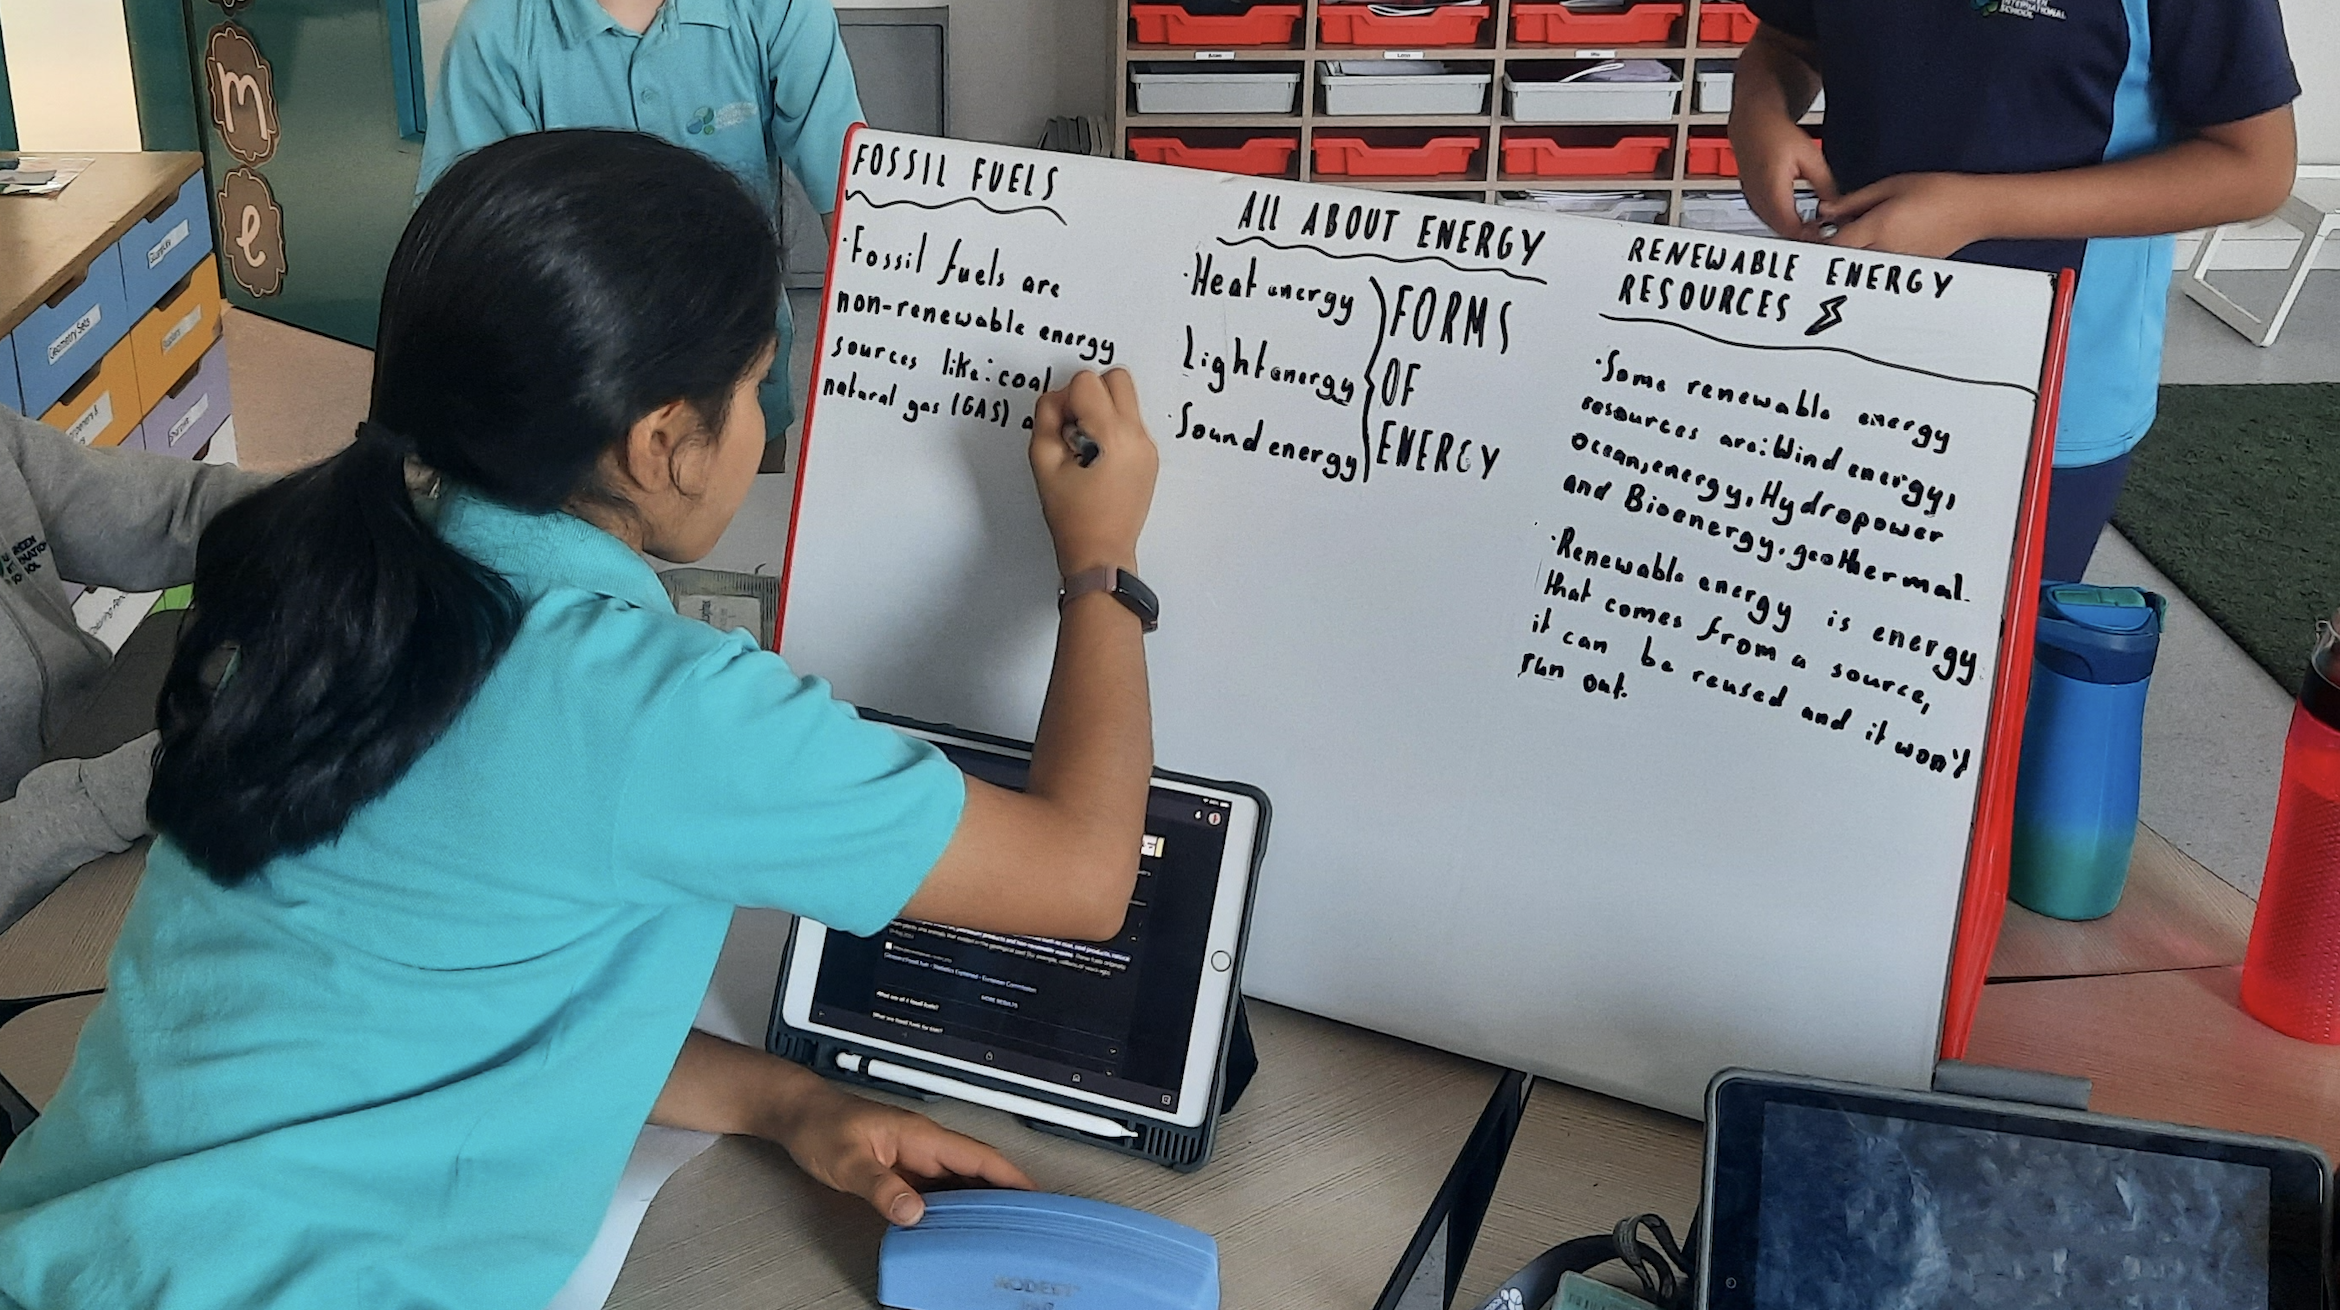 m
e
INTERNATIONAL
SCHOOL
Geometry Sets
FOSSIL FUELS
·Fossil fuels are
non-renewable energy
sources like: coal
natural gas (GAS) a
ALL ABOUT ENERGY
·Heat energy
Light energy
·Sound energy
FORMS
OF
ENERGY
RENEWABLE ENERGY
RESOURCES
·Some renewable energy
resources are: Wind energy,
Ocean, energy, Hydropower
and Bioenergy. geothermal.
·Renewable energy is energy
that comes from a source,
it can be reused and it won't
run out.
MORE RESULTS
What are all 4 fossil fuels?
What are fossil fuels for kids?